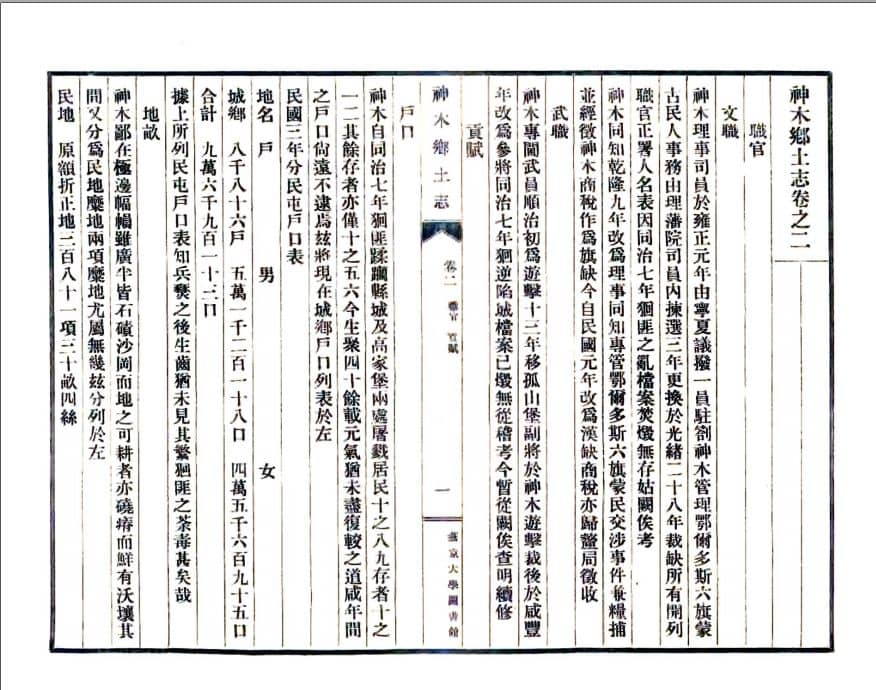 神木鄉土志卷之二
職官
文職
神木理事司員於雍正元年由寧夏議撥一員駐劄神木管理鄂爾多斯六旗蒙
古民人事務由理藩院司員內揀選三年更換於光緒二十八年裁缺所有開列
職官正署人名表因同治七年狪匪之亂檔案焚燬無存姑闕俟考
神木同知乾隆九年改爲理事同知專管鄂爾多斯六旗蒙民交涉事件兼糧捕
並經徵神木商稅作爲旗缺今自民國元年改爲漢缺商稅亦歸釐局徵收
武職
神木專閫武員順治初爲遊擊十三年移孤山堡副將於神木遊擊裁後於咸豐
年改爲參將同治七年狪逆陷城檔案已燬無從稽考今暫從闕俟查明續修
貢賦
神木鄉土志
卷二
職官 貢賦
一
燕京大學圖書館
戶口
神木自同治七年狪匪蹂躪縣城及高家堡兩處屠戮居民十之八九存者十之
一二其餘存者亦僅十之五六今生聚四十餘載元氣猶未盡復較之道咸年間
之戶口尙遠不逮焉茲將現在城鄉戶口列表於左
民國三年分民屯戶口表
地名 戶 男 女
城鄉 八千八十六戶 五萬一千二百一十八口 四萬五千六百九十五口
合計 九萬六千九百一十三口
據上所列民屯戶口表知兵燹之後生齒猶未見其繁狪匪之荼毒甚矣哉
地畝
神木鄙在極邊幅幀雖廣半皆石磧沙岡而地之可耕者亦磽瘠而鮮有沃壤其
間又分爲民地糜地兩項糜地尤屬無幾茲分列於左
民地 原額折正地二百八十一項三十畝四絲